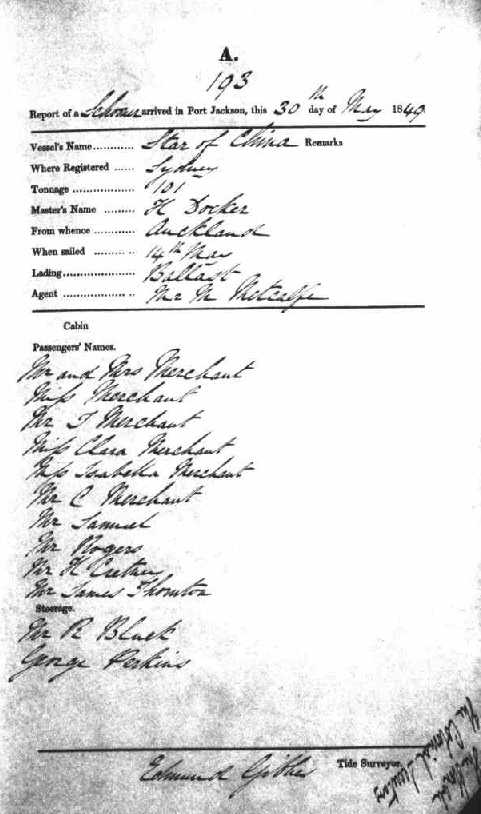 A.
193
Report of a Schooner arrived in Port Jackson, this 30th day of May 1849
Vessel's Name............ Star of China Remarks
Where Registered ...... Sydney
Tonnage .................. 101
Master's Name ......... H Docker
From whence ............ Auckland
When sailed ............ 14th May
Lading..................... Ballast
Agent ..................... Mr M Metcalfe
Cabin
Passengers' Names.
Mr and Mrs Merchant
Miss Merchant
Mr T Merchant
Miss Clara Merchant
Miss Isabella Merchant
Mr C Merchant
Mr Samuel
Mr Rogers
Mr H
Mr James Thornton
Steerage.
Mr R Black
George Perkins
Edmund Tide Surveyor.